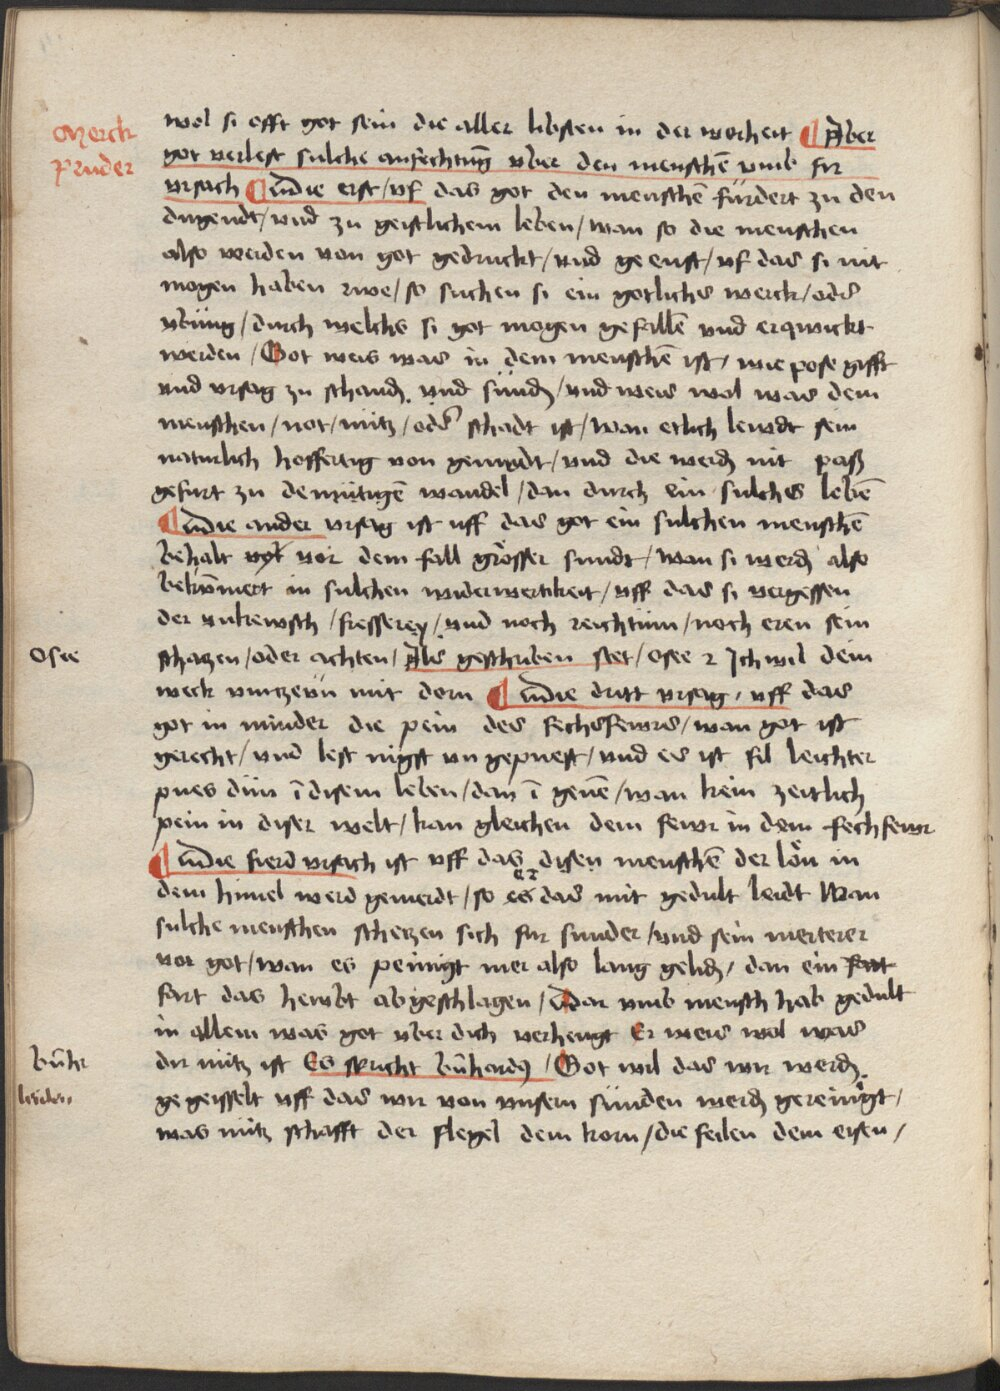 Merck
Pruder
wol si offt got sein die aller libsten in der worheit ¶ Aber
got verlest sulche anfechtung̅ vber den menschē vmb fir
vrsach ¶ Die erst / vf das got den menschē fürdert zu den
dugendt / vnd zu geistlichem leben / wan so die menschen
also werden von got gedruckt / vnd geenst / vf das si nit
mogen haben rwe / so suchen si ein gotlichs werck / oder
vbüng / durch welchs si got mogen gefallē vnd erqwickt
werden / Got weis was in dem menschē ist / wie pose gifft
vnd vrsag zu schandꝫ vnd sündꝫ / vnd weis wol was dem
menschen / not / nütz / oder schadt ist / wan etlich lewdt sein
naturlich hoffertig von gemudt / vnd die werdꝫ nit pasz
gefurt zu demütigē wandel / dan durch ein sulches lebē
¶ Die ander vrsag ist uff das got ein sulchen menschē
behalt vor dem fall grösser sundt / wan si werdꝫ also
bekūmert in sulchen widerwertikeit / vff das si vergessen
der vnkewsch / fresserey / vnd noch reichtum / noch eren sein
Osee
schatzen / oder achten / Als geschriben stet / osee 2 Ich wil dein
weck vmzeün mit dorn ¶ Die dritt vrsag / vff das
got in minder die pein des fechsfewrs / wan got ist
gerecht / vnd lest nigst vn gepuest / vnd es ist fil leichter
pues dün ī disem leben / dan ī genē / wan kein zeitlich
pein in diser welt / kan gleichen dem fewr in dem fechfewr
¶ Die fierd vrsach ist vff das disen menschē der lön in
dem himel werd gemerdt / so er das mit gedult leidt Wan
sulche menschen schetzen sich fur sunder / vnd sein merterer
vor got / wan es peinigt mer also lang gelidꝫ / dan ein
fart das hewbt abgeschlagen / Dar vmb mensch hab gedult
in allem was got vber dich verhengt Er weis wol was
bn̄hr
dir nütz ist Es spricht bn̄hardꝯ / Got wil das wir werdꝫ
gegeisselt vff das wir von vnsern sünden werdꝫ gereinigt /
was nütz schafft der flegel dem korn / die feilen dem eisen /